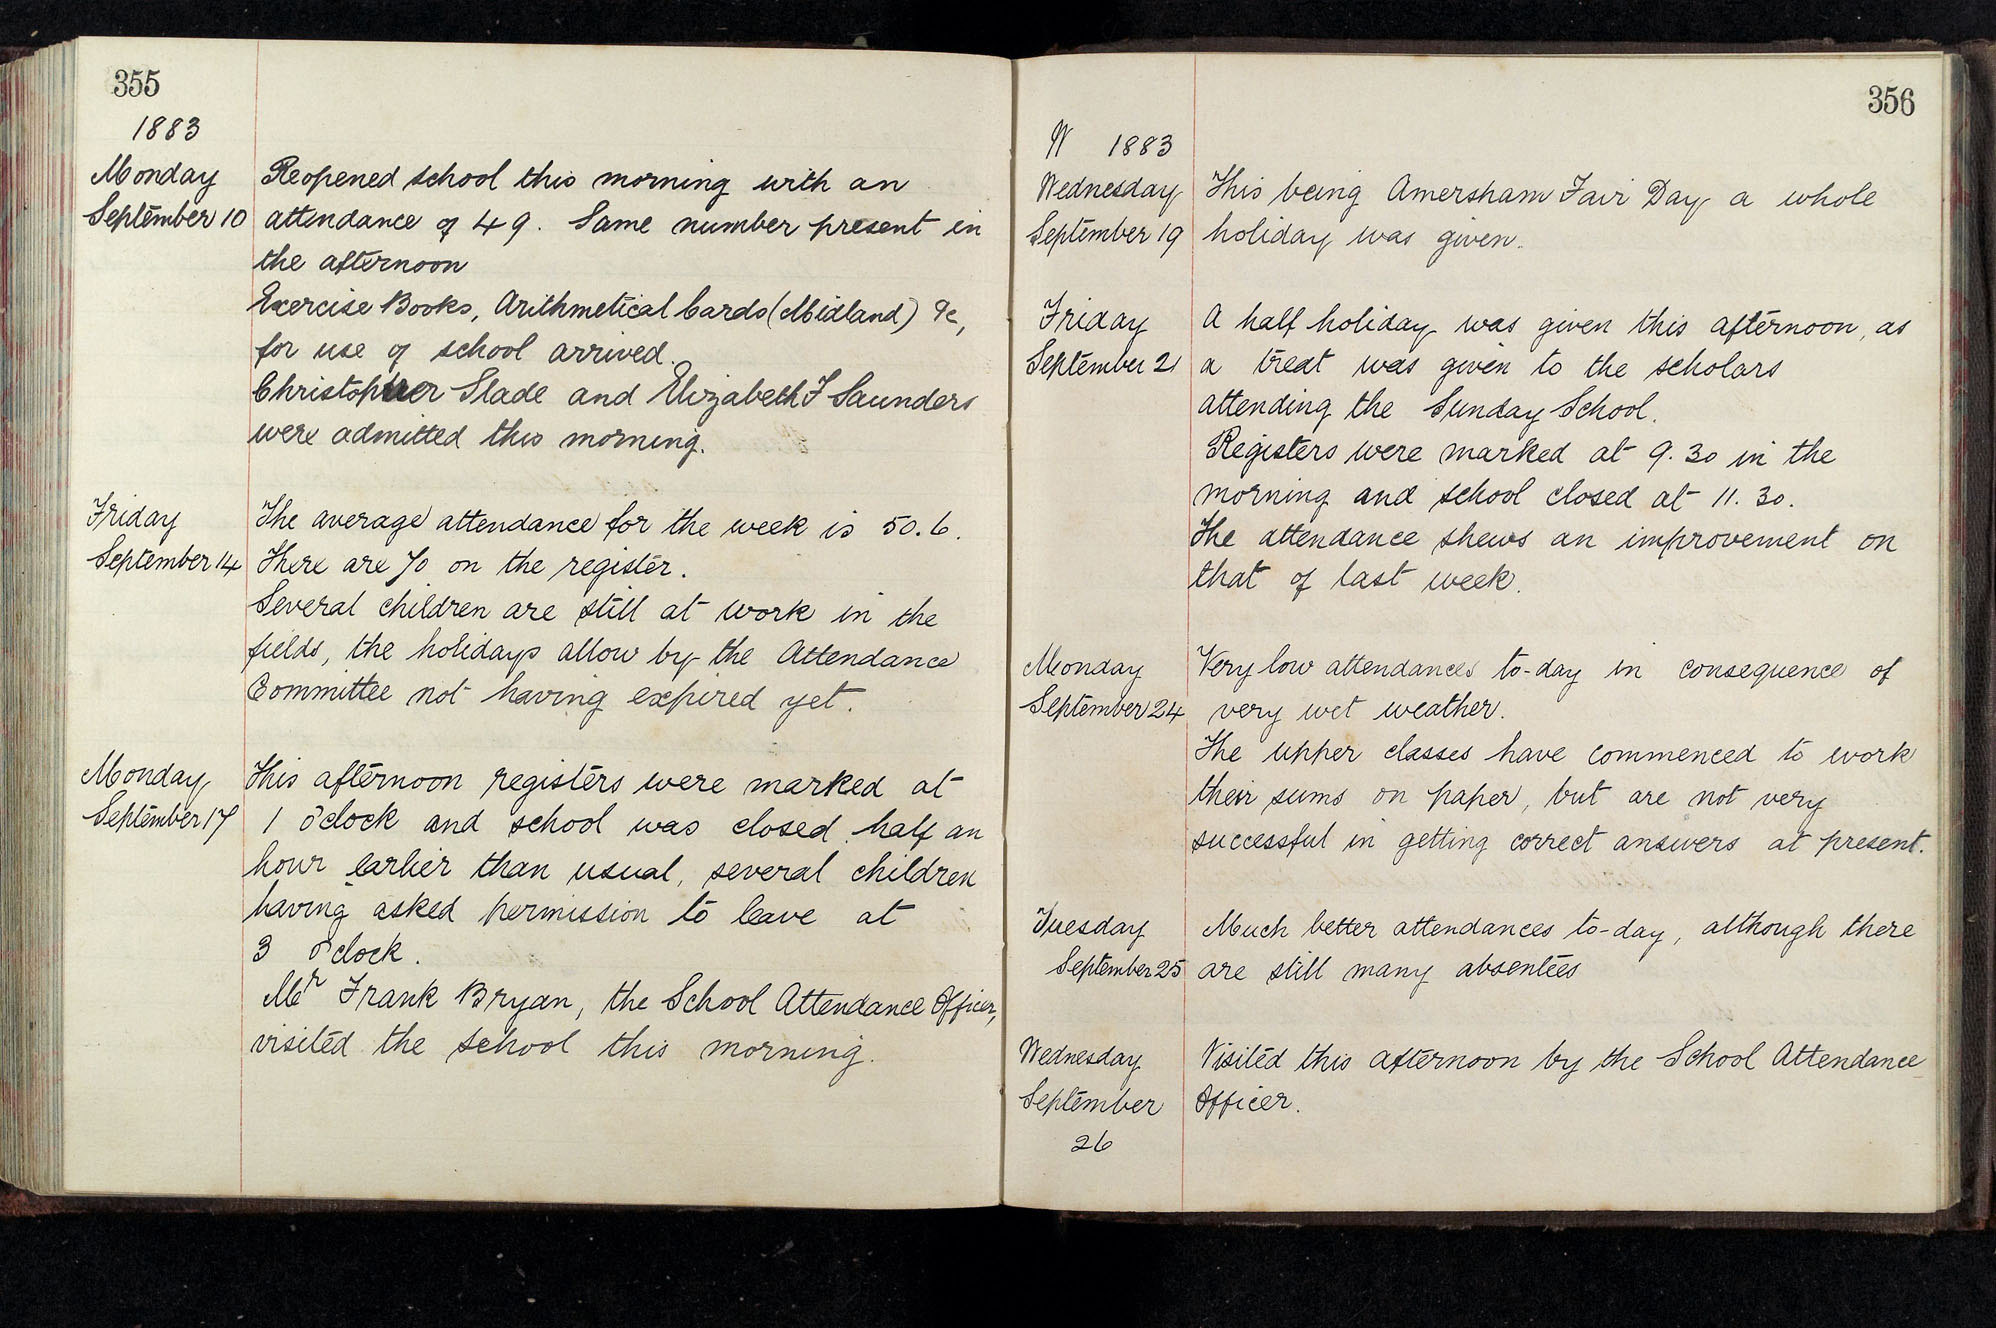 355
1883
Monday
September 10
Reopened school this morning with an
attendance of 49. Same number present in
the afternoon
Exercise Books, Arithmetical Cards (Midland) &c,
for use of school arrived.
Christopher Slade and Elizabeth F Saunders
were admitted this morning.
Friday
September 14
The average attendance for the week is 50.6.
There are 70 on the register.
Several children are still at work in the
fields, the holidays allow by the Attendance
Committee not having expired yet.
Monday
September 17
This afternoon registers were marked at
1 o'clock and school was closed half an
hour earlier than usual, several children
having asked permission to leave at
3 o'clock.
Mr Frank Bryan, the School Attendance Officer,
visited the school this morning.
356
W 1883
Wednesday
September 19
This being Amersham Fair Day a whole
holiday was given.
Friday
September 21
A half holiday was given this afternoon, as
a treat was given to the scholars
attending the Sunday School.
Registers were marked at 9.30 in the
morning and school closed at 11.30.
The attendance shews an improvement on
that of last week.
Monday
September 24
Very low attendances to-day in consequence of
very wet weather.
The upper classes have commenced to work
their sums on paper, but are not very
successful in getting correct answers at present.
Tuesday
September 25
Much better attendances to-day, although there
are still many absentees
Wednesday
September
26
Visited this afternoon by the School Attendance
Officer.